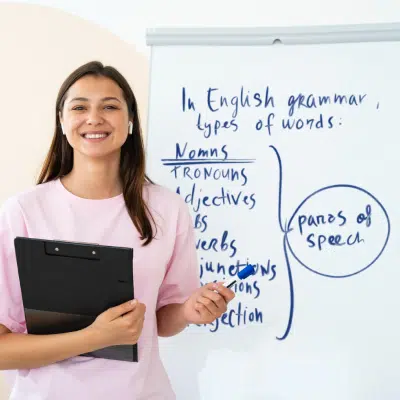 In English grammar,
types of words:
Nomns
PRONOUNS
Adjectives
bs
erbs
junctions
itions
jection
paros of
speech